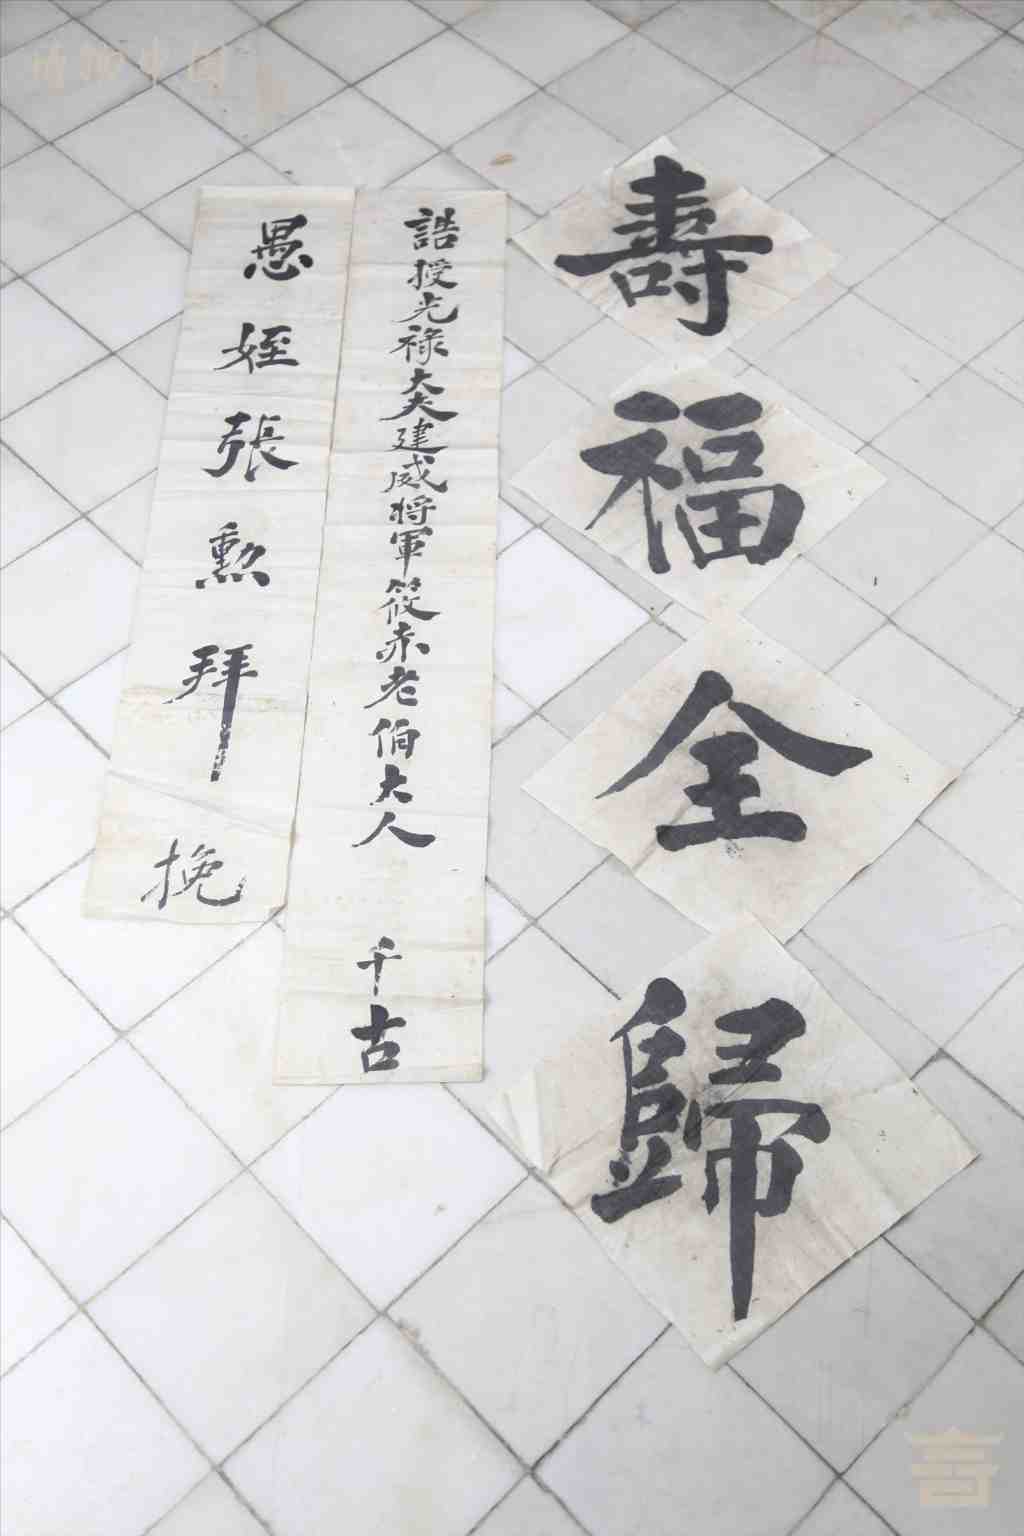 壽福全歸
誥授光祿大夫建威將軍筱赤老伯大人 千古
愚姪張勲拜挽
博物中国